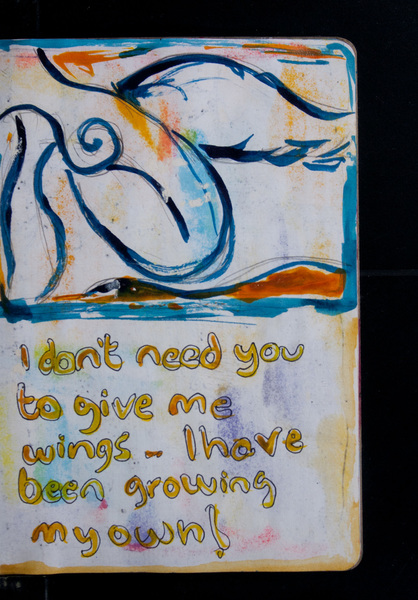 I don't need you
to give me
wings - I have
been growing
my own!